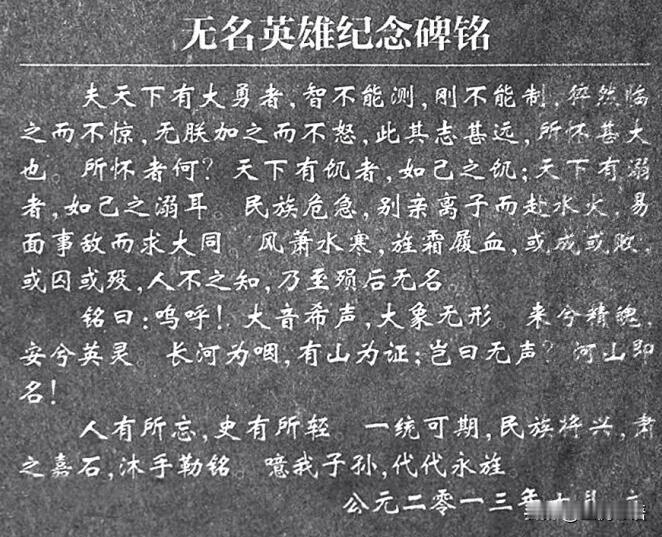 无名英雄纪念碑铭
夫天下有大勇者,智不能测,刚不能制,猝然临
之而不惊,无朕加之而不怒,此其志甚远,所怀甚大
也。所怀者何?天下有饥者,如己之饥;天下有溺
者,如己之溺耳。民族危急,别亲离子而赴水火,易
面事敌而求大同 风萧水寒,旌霜履血,或成或败,
或囚或殁,人不之知,乃至殒后无名
铭曰:呜呼!大音希声,大象无形 来兮精魄,
安兮英灵 长河为咽,青山为证;岂曰无声?河山即
名!
人有所忘,史有所轻 一统可期,民族将兴,肃
之嘉石,沐手勒铭。噫我子孙,代代永旌
公元二零一三年十月